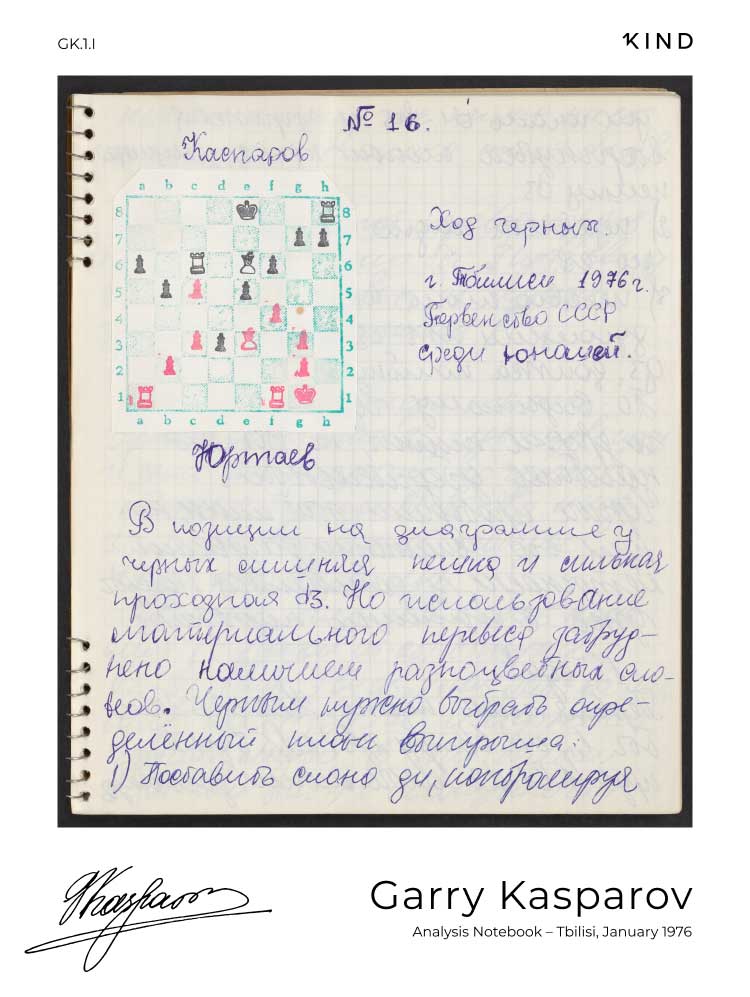 GK.1.I
KIND
№ 16.
Каспаров
a b c d e f g h
8 8
7 7
6 6
5 5
4 4
3 3
2 2
1 1
a b c d e f g h
Ход черных.
г. Тбилиси 1976 г.
Первенство СССР
среди юношей.
Юртаев
В позиции на диаграмме у
черных лишняя пешка и сильная
проходная d3. Но использование
материального перевеса затруд-
нено наличием разноцветных сло-
нов. Черным нужно выбрать опре-
делённый план выигрыша:
1) Поставить слона
Garry Kasparov
Analysis Notebook – Tbilisi, January 1976